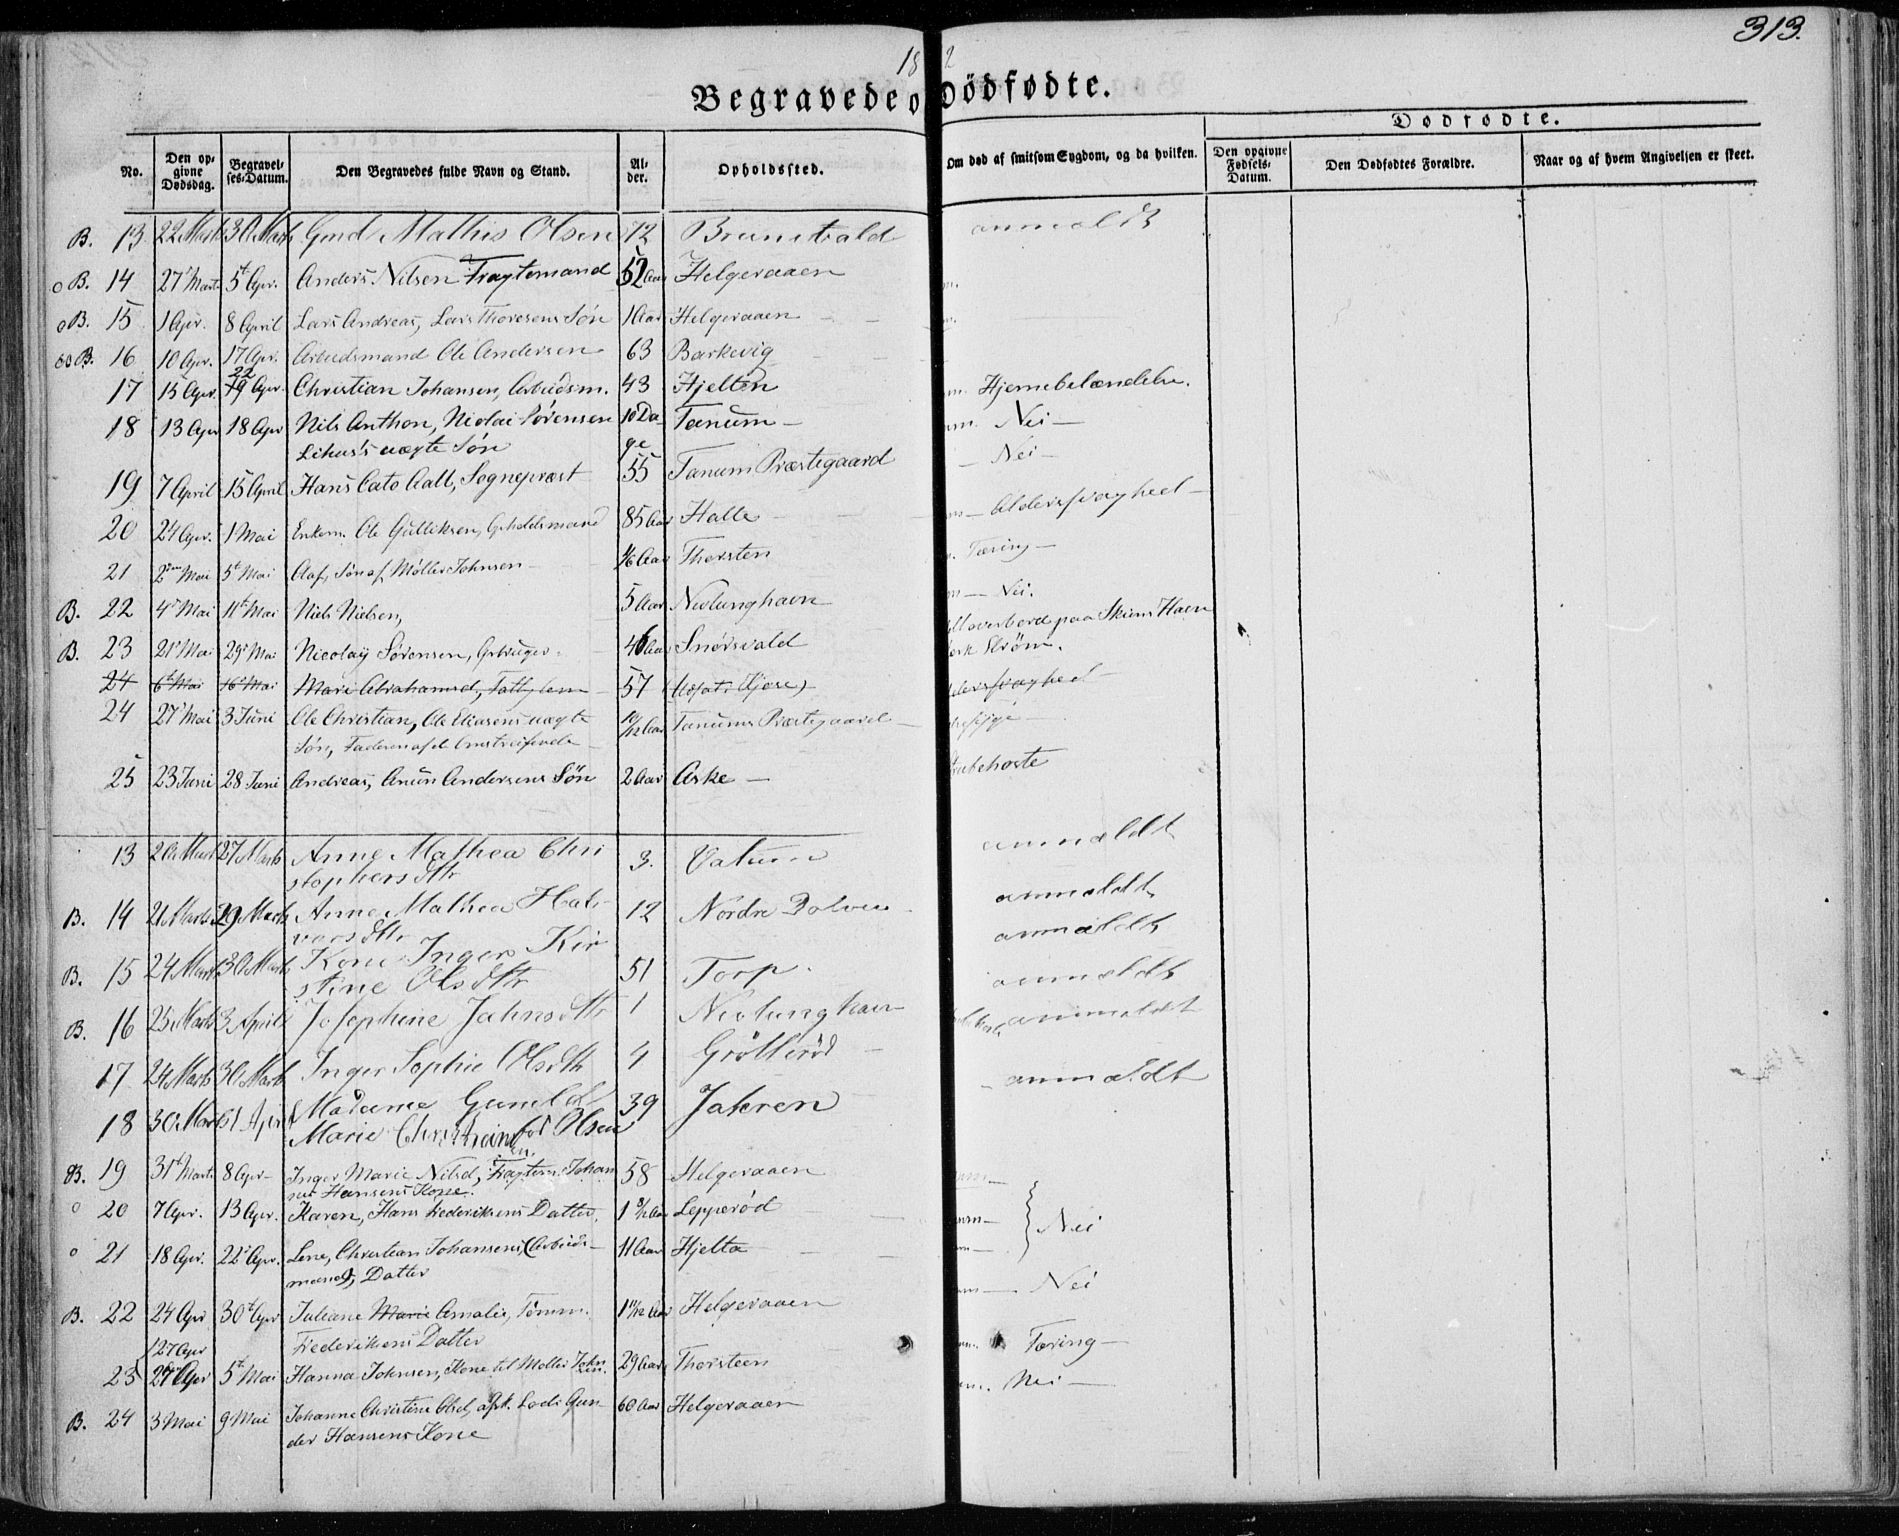 313.
18 2
Begravede o Dødfødte.
No. Den opgivne Dødsdag. Begravelses-Datum. Den Begravedes fulde Navn og Stand. Alder. Opholdssted. Om død af smitsom Sygdom, og da hvilken. Dødfødte. Den opgivne Fødsels-Datum. Den Dødfødtes Forældre. Naar og af hvem Angivelsen er skeet.
B. 13 22 Marts 30 Marts Gml. Mathis Olsen 72 Brunsvald anmeldt
o B. 14 27 Marts 5t Apr. Anders Nilsen Fragtemand 52 Aar Helgeraaen
o B. 15 1 Apr. 8 April Lars Andreas, Lars Thoresens Søn 1 Aar Helgeraaen
B. 16 10 Apr. 17 Apr. Arbeidsmand Ole Andersen 63 Barkevig
17 15 Apr. 22 19 Apr. Christian Johansen, Arbeidsm. 43 Hjelten Hjernebetændelse.
18 13 Apr 18 Apr Nils Anthon, Nicolai Sørensen 10 Da- Tanum – Nei –
uægte Søn ge
19 7 April 15 April Hans Cato Aall, Sognepræst 55 Tanum Præstegaard – Nei –
20 24 Apr. 1 Mai Enkem. Ole Gulliksen, 85 Aar Halle Alderssvaghed –
21 2 Mai 5t Mai Olaf, Søn af Møller Johnsen – Aar Thorsten Tæring –
B. 22 4 Mai 11t Mai Niels Nielsen, 5 Aar Nevlunghavn – Nei.
B. 23 21 Mai 29 Mai Nicolay Sørensen, Gbruger. 46 Aar Snørsvald overbord paa Skiens Havn
Strøm.
24 6t Mai 16 Mai Mari Abrahamsd, Fattiglem 57 (Kjose) derssvaghed –
24 27 Mai 3 Juni Ole Christian, Ole Eliasens uægte 10/12 Aar Tanums Præstegaard –
Søn, Faderen
25 23 Juni 28 Juni Andreas, Anun Andersens Søn 2 Aar Aske – hoste
13 20 Marts 27 Marts Anne Mathea Chri 3. Valum anmeldt
stophersdttr
B. 14 21 Marts 29 Marts Anne Mathea Hal- 12 Nordre Bolven anmeldt
vorsdttr
B. 15 24 Marts 30 Marts Kone Inger Kir 51 Torp. anmeldt
stine Olsdttr anmeldt
B. 16 25 Marts 3 April Josephine Jahnsdttr 1 Nevlunghavn anmeldt
17 24 Marts 30 Marts Inger Sophie Olsdttr 4 Grøtterød
18 30 Marts 1 April Madame Gunild 39 Jahren anmeldt
Marie fød Olsen
B. 19 31t Marts 8 Apr – Inger Marie Nilsd, Fragtem. Johan 58 Helgeraaen
nes Hansens Kone.
o 20 7 Apr. 13 Apr. Karen, Hans Frederiksens Datter, 1 8/12 Aar Lepperød Nei
o 21 18 Apr. 22 Apr. Lene, Christian Johansens, Arbeids– 11 Aar Hjelta
mands, Datter
B. 22 24 Apr 30t Apr Juliane Marie Amalie, Tømm. 1 11/12 Aar Helgeraaen – Nei
Frederiksens Datter
27 Apr
23 27 Apr 5t Mai Hanna Johnsen, Kone til Møller John 29 Aar Thorsteen Tæring –
sen.
B. 24 3 Mai 9 Mai Johanne Christine Olsd, afsk. Lods Gun– 60 Aar Helgeraaen Nei –
der Hansens Kone